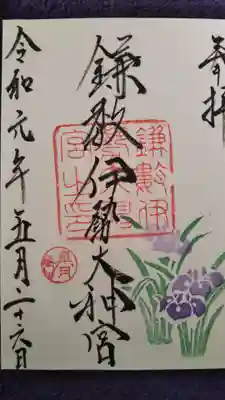 奉拝
鎌数伊勢大神宮
鎌數伊
宮之印
令和元年五月二十六日